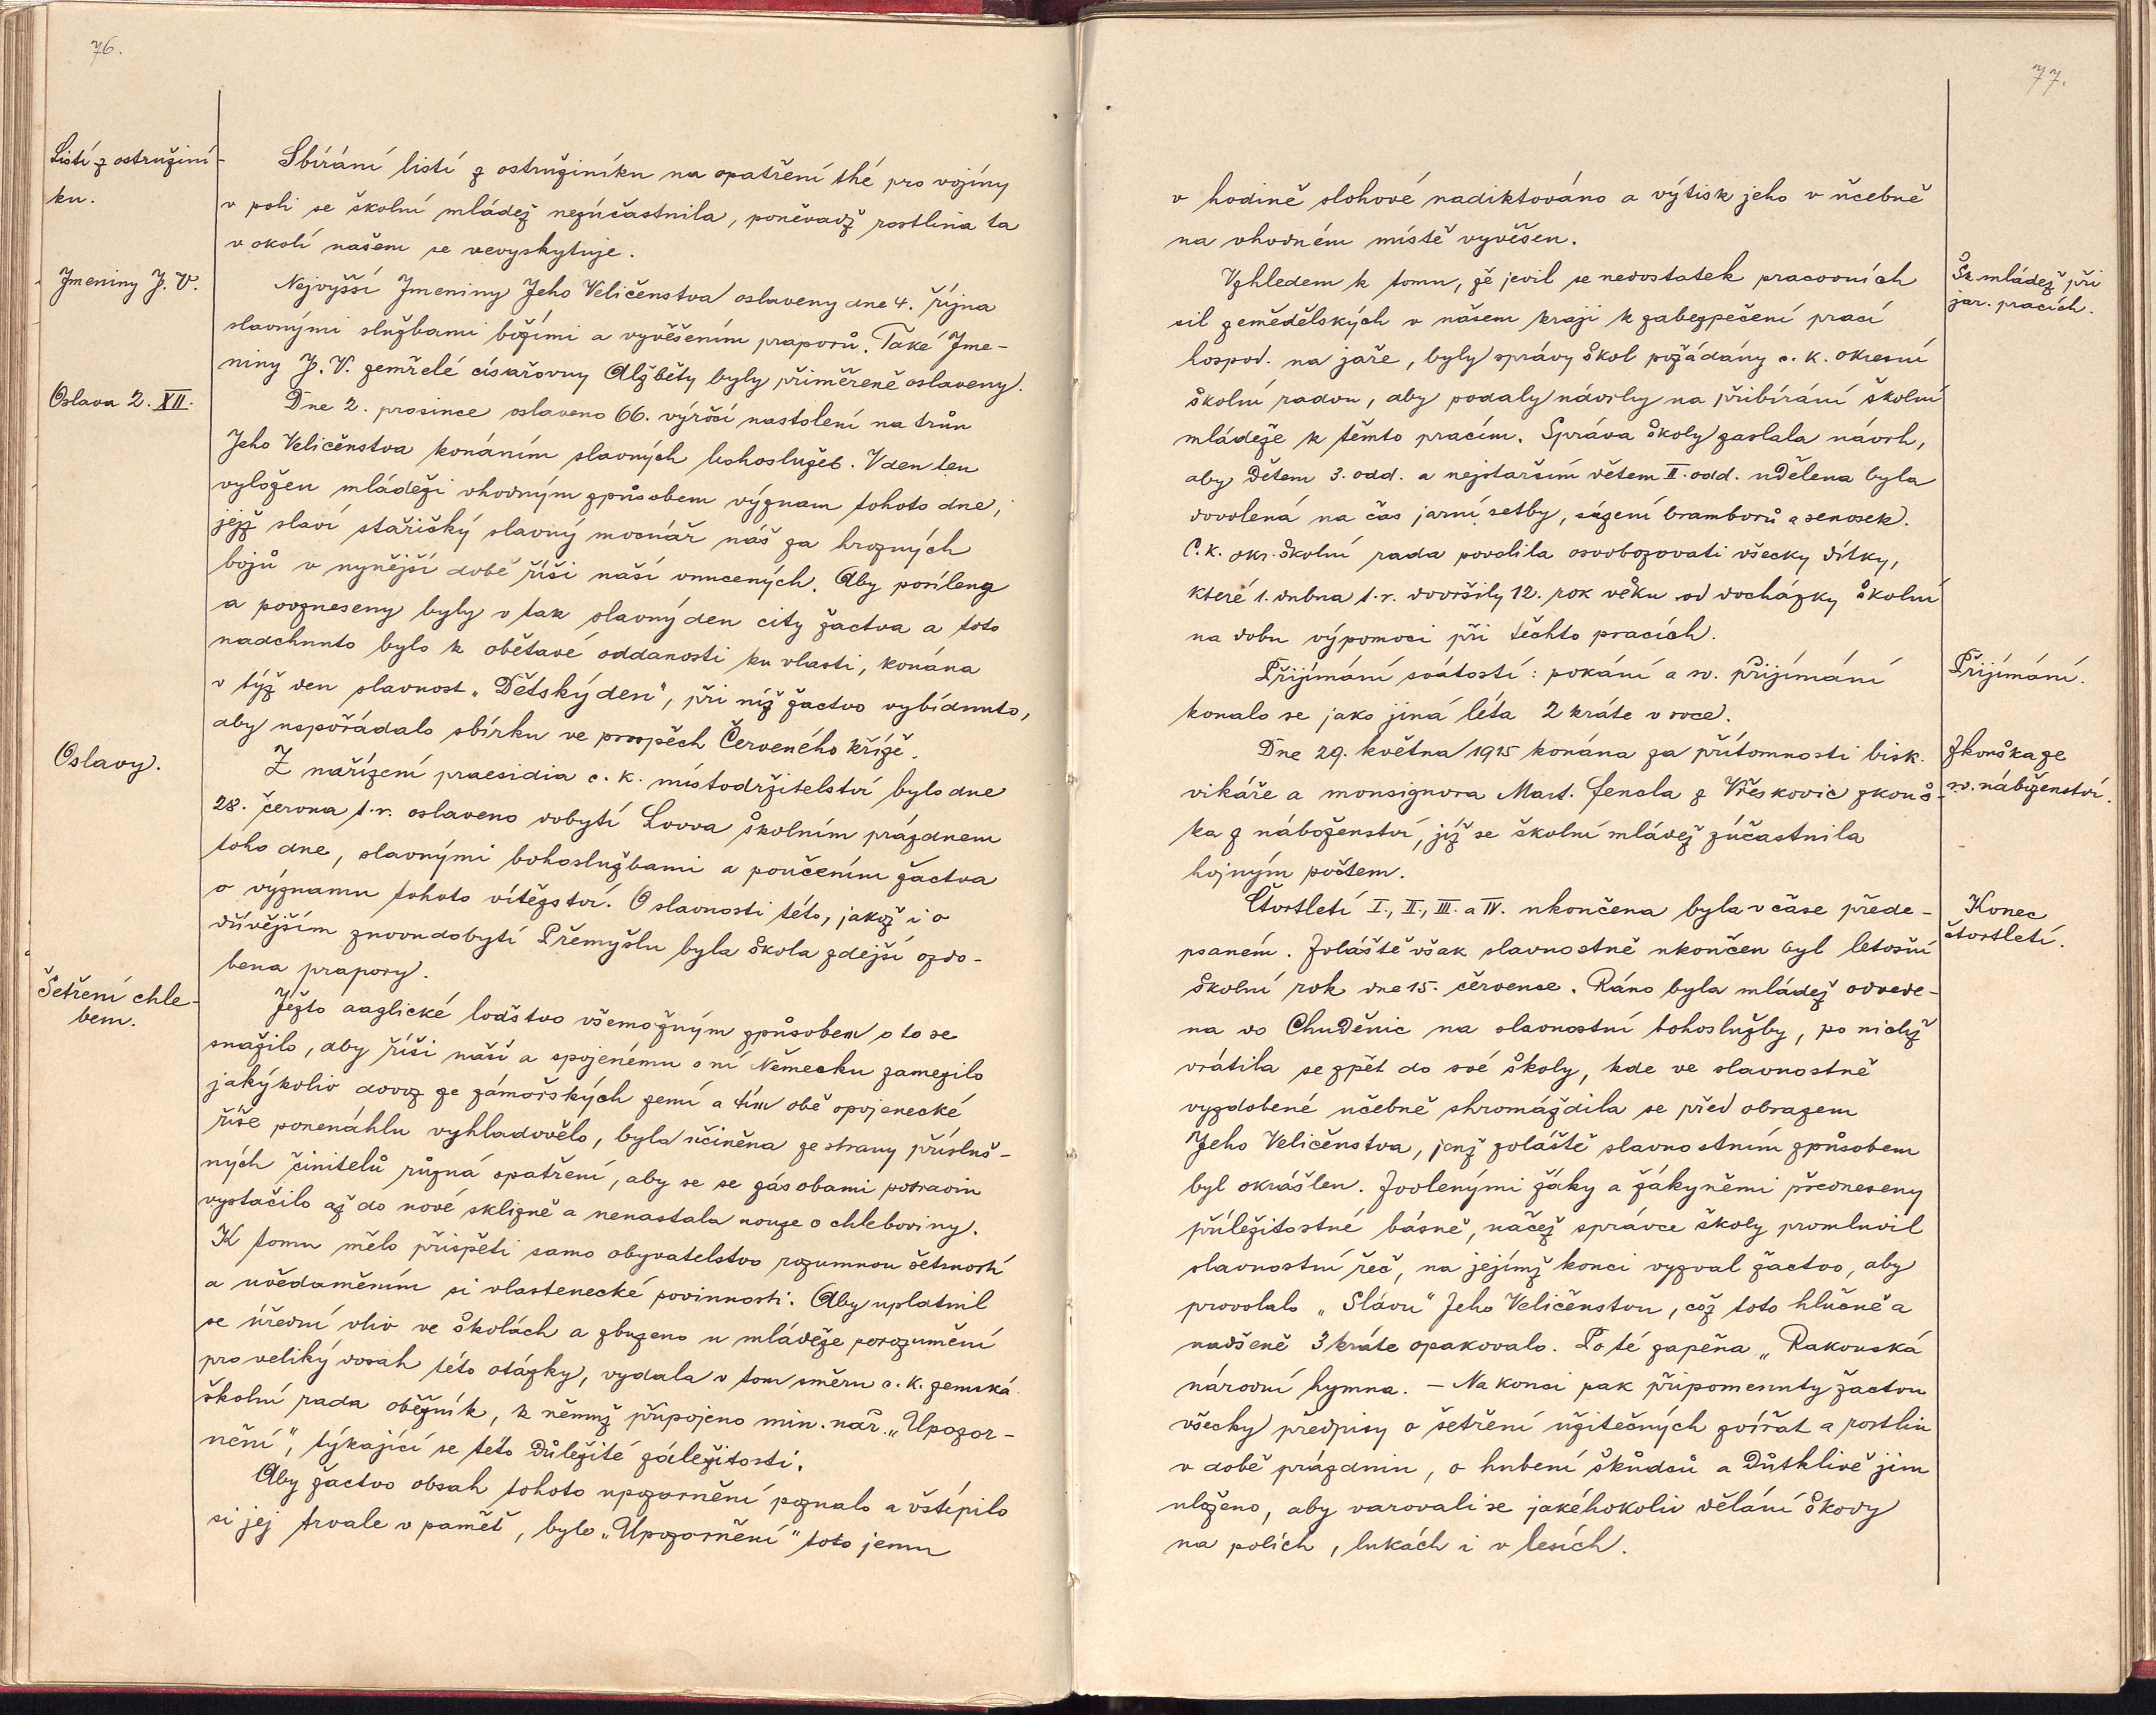 76.
Listí z ostružiní-
ku.
Sbírání listí z ostružiníku na opatření thé pro vojíny
v poli se školní mládež nezúčastnila, poněvadž rostlina ta
v okolí našem se nevyskytuje.
Jmeniny J. V.
Nejvyšší Jmeniny Jeho Veličenstva oslaveny dne 4. října
slavnými službami božími a vyvěšením praporů. Také Jme-
niny J. V. zemřelé císařovny Alžběty byly přiměřeně oslaveny.
Oslava 2. XII.
Dne 2. prosince oslaveno 66. výročí nastolení na trůn
Jeho Veličenstva konáním slavných bohoslužeb. V den ten
vyložen mládeži vhodným způsobem význam tohoto dne,
jejž slaví stařičký slavný mocnář náš za hrozných
bojů v nynější době říši naší vnucených. Aby posíleny
a povzneseny byly v tak slavný den city žactva a toto
nadchnuto bylo k obětavé oddanosti ku vlasti, konána
v týž den slavnost „Dětský den", při níž žactvo vybídnuto,
aby uspořádalo sbírku ve prospěch Červeného kříže.
Oslavy.
Z nařízení praesidia c. k. místodržitelství bylo dne
28. června t. r. oslaveno dobytí Lvova školním prázdnem
toho dne, slavnými bohoslužbami a poučením žactva
o významu tohoto vítězství. O slavnosti této, jakož i o
dřívějším znovudobytí Přemyšlu byla škola zdejší ozdo-
bena prapory.
Šetření chle-
bem.
Ježto anglické loďstvo všemožným způsobem o to se
snažilo, aby říši naší a spojenému s ní Německu zamezilo
jakýkoliv dovoz ze zámořských zemí a tím obě spojenecké
říše ponenáhlu vyhladovělo, byla učiněna ze strany přísluš-
ných činitelů různá opatření, aby se se zásobami potravin
vystačilo až do nové sklizně a nenastala nouze o chleboviny.
K tomu mělo přispěti samo obyvatelstvo rozumnou šetrností
a uvědoměním si vlastenecké povinnosti. Aby uplatnil
se úřední vliv ve školách a zbuzeno u mládeže porozumění
pro veliký dosah této otázky, vydala v tom směru c. k. zemská
školní rada oběžník, k němuž připojeno min. nař. „Upozor-
nění", týkající se této důležité záležitosti.
Aby žactvo obsah tohoto upozornění poznalo a vštípilo
si jej trvale v paměť, bylo „Upozornění" toto jemu
77.
v hodině slohové nadiktováno a výtisk jeho v učebně
na vhodném místě vyvěšen.
Šk. mládež při
jar. pracích.
Vzhledem k tomu, že jevil se nedostatek pracovních
sil zemědělských v našem kraji k zabezpečení prací
hospod. na jaře, byly správy škol požádány c. k. okresní
školní radou, aby podaly návrhy na přibírání školní
mládeže k těmto pracím. Správa školy zaslala návrh,
aby dětem 3. odd. a nejstarším dětem II. odd. udělena byla
dovolená na čas jarní setby, sázení bramborů a senosek.
C. k. okr. školní rada povolila osvobozovati všecky dítky,
které 1. dubna t. r. dovršily 12. rok věku od docházky školní
na dobu výpomoci při těchto pracích.
Přijímání.
Přijímání svátostí: pokání a sv. přijímání
konalo se jako jiná léta 2 kráte v roce.
Zkouška ze
sv. náboženství.
Dne 29. května 1915 konána za přítomnosti bisk.
vikáře a monsignora Mart. Fencla z Vřeskovic zkouš-
ka z náboženství, jíž se školní mládež zúčastnila
hojným počtem.
Konec
čtvrtletí.
Čtvrtletí I., II., III. a IV. ukončena byla v čase přede-
psaném. Zvláště však slavnostně ukončen byl letošní
školní rok dne 15. července. Ráno byla mládež odvede-
na do Chuděnic na slavnostní bohoslužby, po nichž
vrátila se zpět do své školy, kde ve slavnostně
vyzdobené učebně shromáždila se před obrazem
Jeho Veličenstva, jenž zvláště slavnostním způsobem
byl okrášlen. Zvolenými žáky a žákyněmi předneseny
příležitostné básně, načež správce školy promluvil
slavnostní řeč, na jejímž konci vyzval žactvo, aby
provolalo „Slávu" Jeho Veličenstvu, což toto hlučně a
nadšeně 3 kráte opakovalo. Po té zapěna „Rakouská
národní hymna. — Na konci pak připomenuty žactvu
všecky předpisy o šetření užitečných zvířat a rostlin
v době prázdnin, o hubení škůdců a důtklivě jim
uloženo, aby varovali se jakéhokoliv dělání škody
na polích, lukách i v lesích.